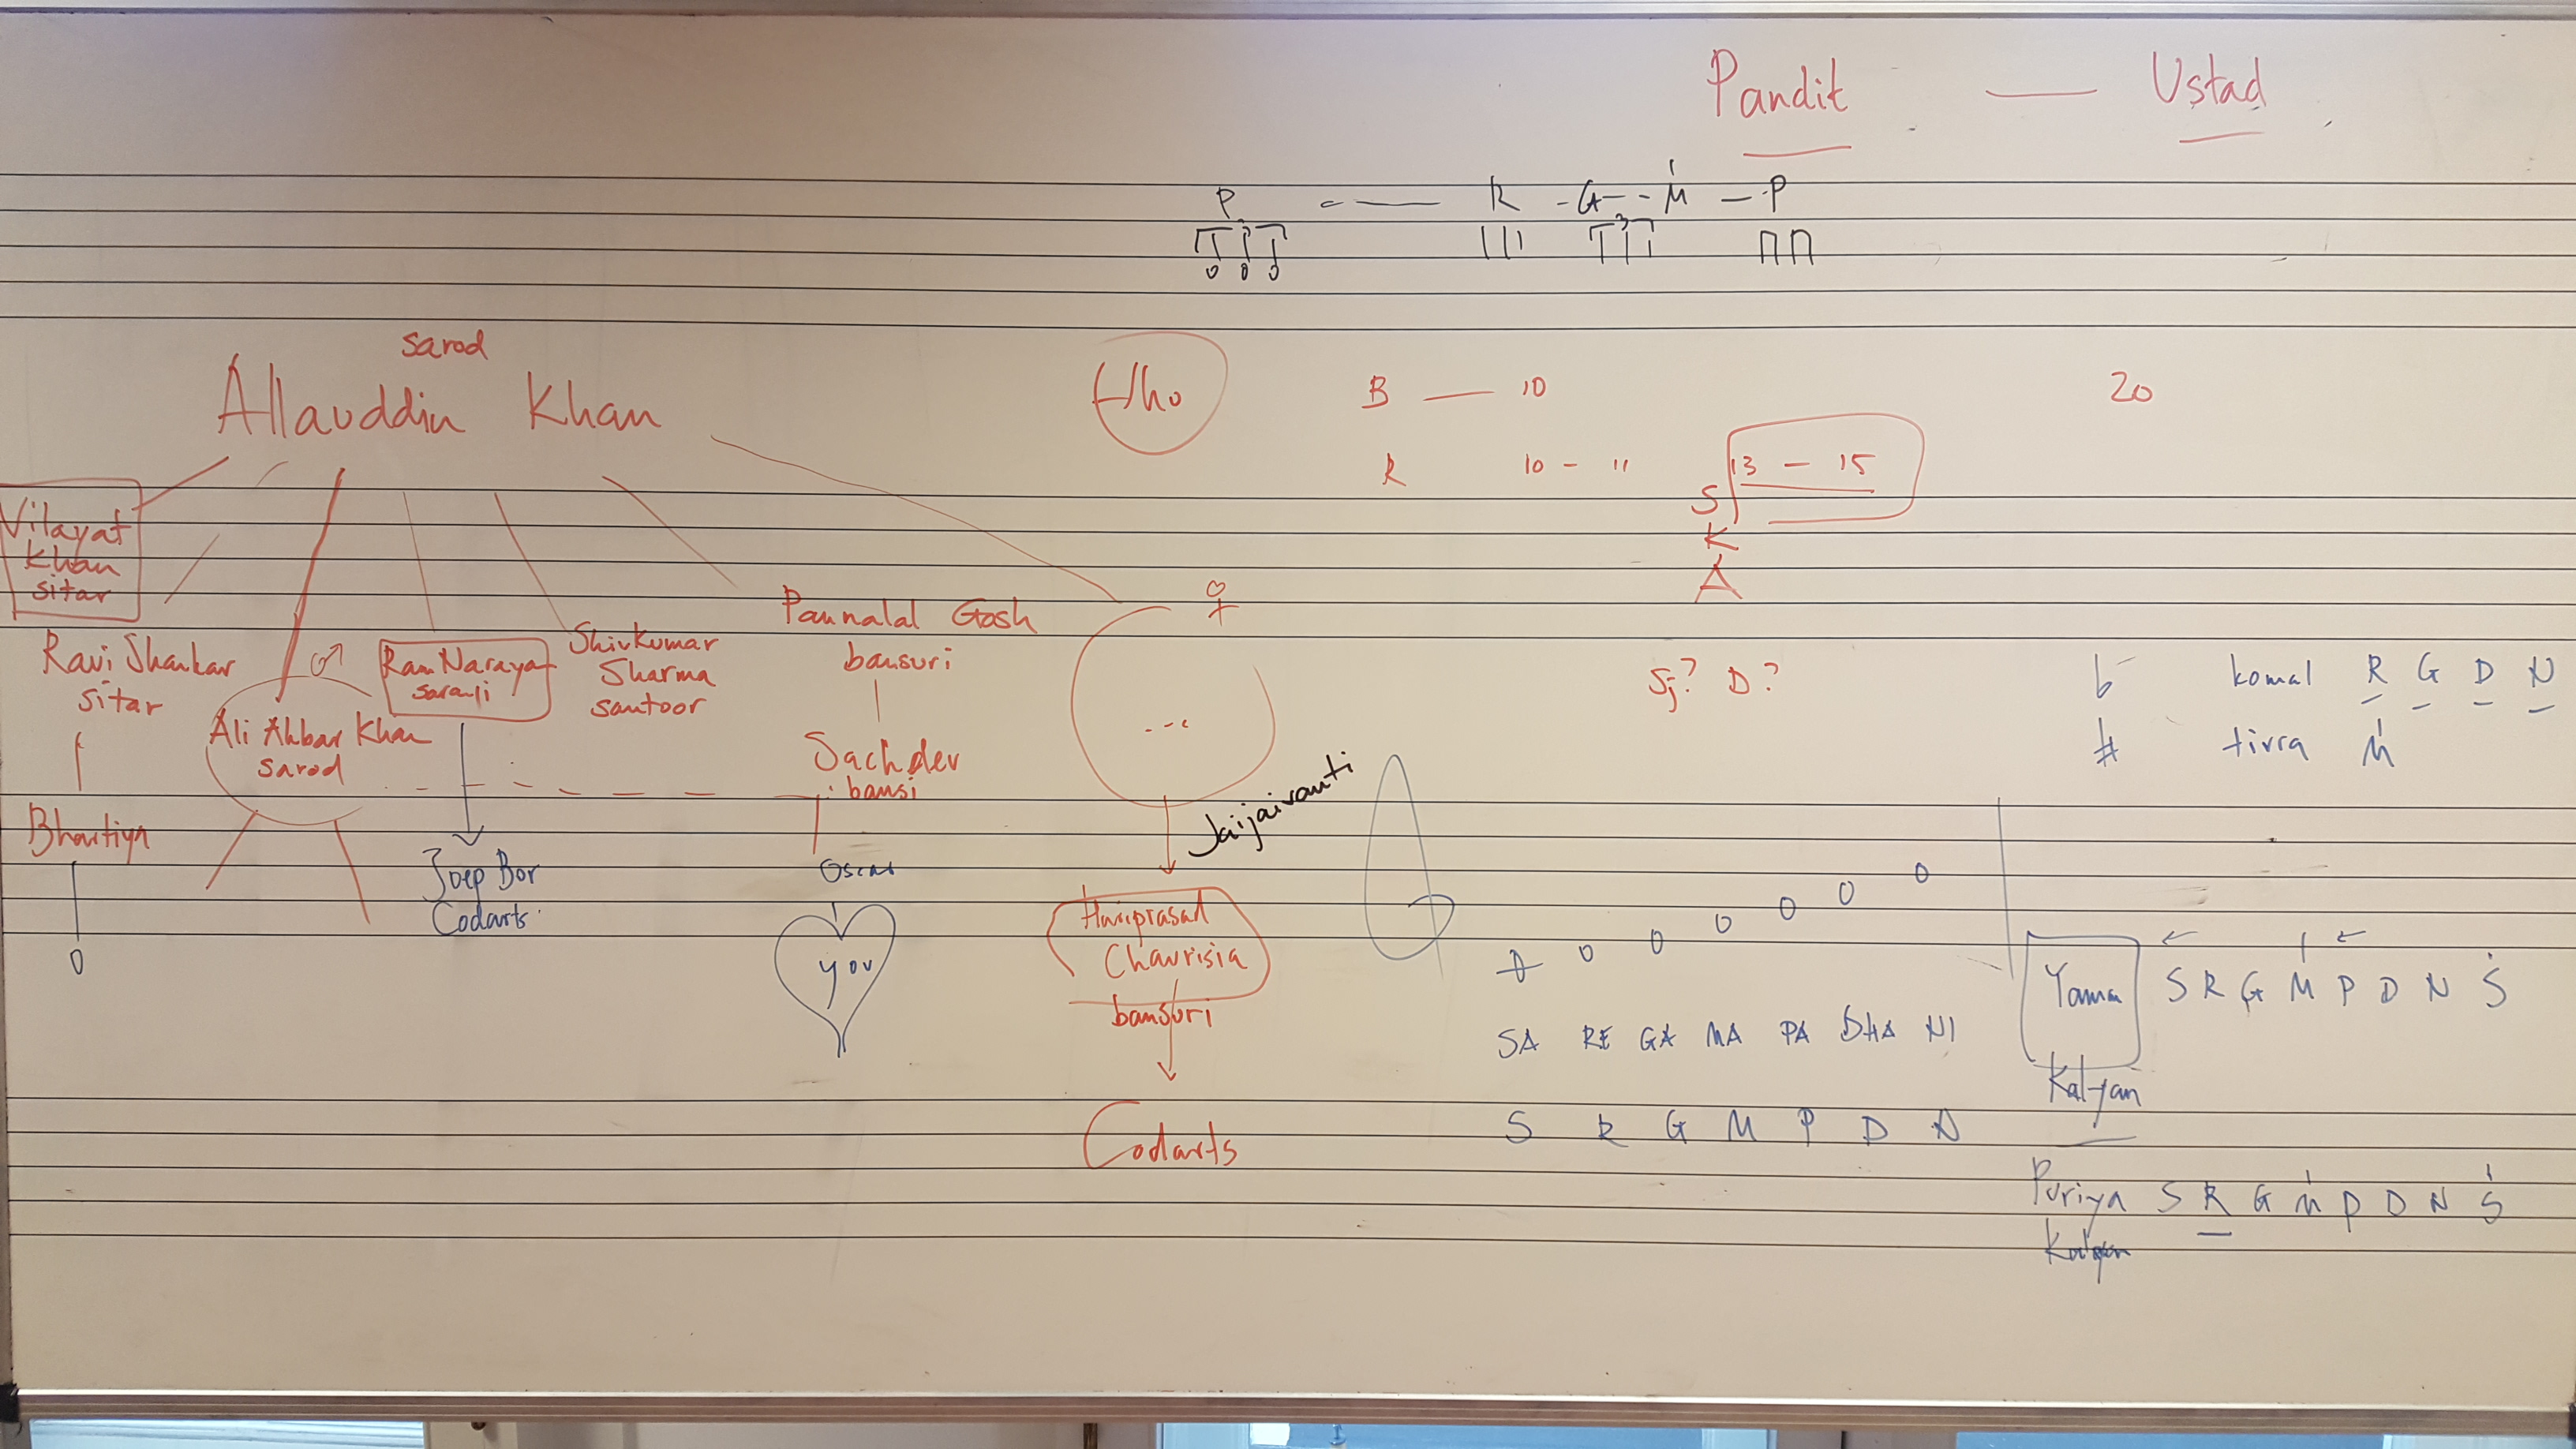 Pandit — Ustad
P — R - G - - Ḿ — P
3
sarod
Allauddin Khan
B — 10
20
R 10 - 11
13 - 15
S
K
A
Vilayat
Khan
sitar
Ravi Shankar
sitar
Bhartiya
♂
Ali Akbar Khan
sarod
Ram Narayan
sarangi
Joep Bor
Codarts
Shivkumar
Sharma
santoor
Pannalal Gosh
bansuri
Sachdev
bansi
Oscar
you
♀
...
Jaijaivanti
Hariprasad
Chaurisia
bansuri
Codarts
S? D?
♭ komal R G D N
# tivra Ḿ
SA RE GA MA PA DHA NI
S R G M P D N
Yaman S R G Ḿ P D N Ṡ
Kalyan
Puriya S R G Ḿ P D N Ṡ
Kalyan